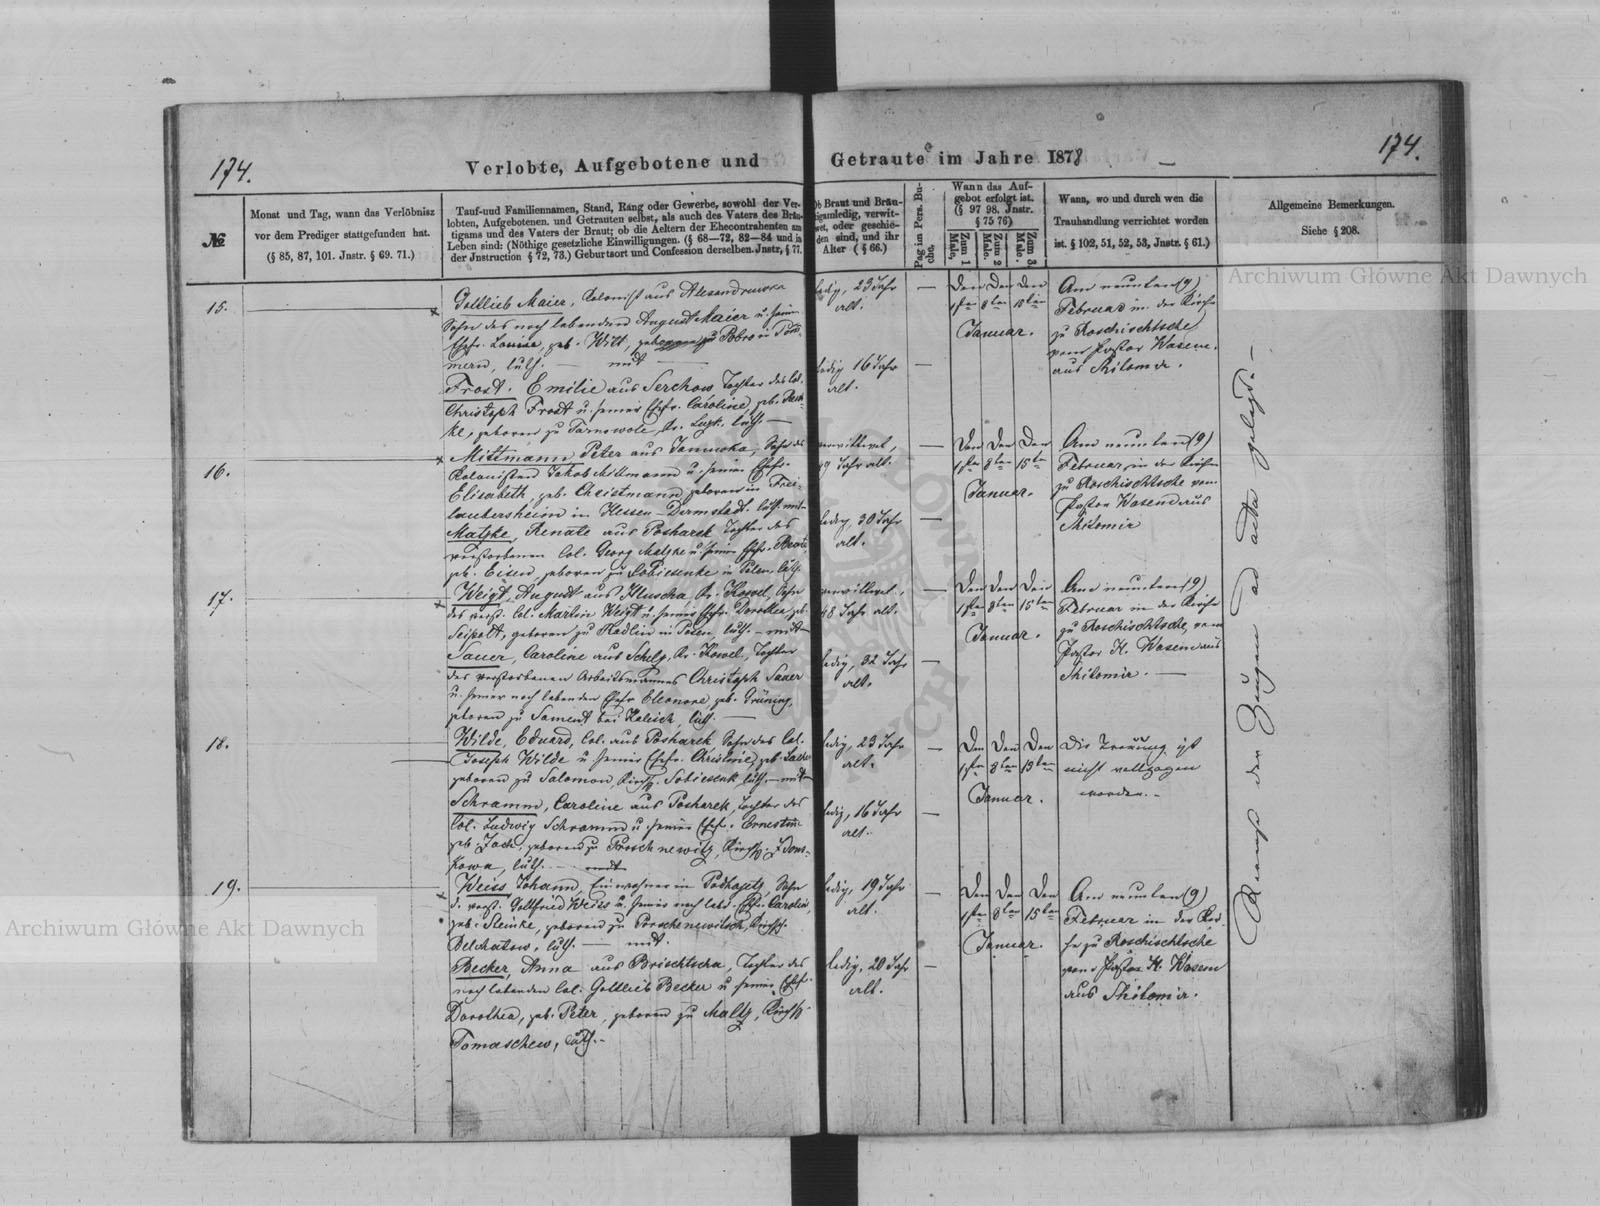 174.
Verlobte, Aufgebotene und
Getraute im Jahre 1878
174.
№
Monat und Tag, wann das Verlöbnisz
vor dem Prediger stattgefunden hat.
(§ 85, 87, 101. Jnstr. § 69. 71.)
Tauf-und Familiennamen, Stand, Rang oder Gewerbe, sowohl der Ver-
lobten, Aufgebotenen und Getrauten selbst, als auch des Vaters des Bräu-
tigams und des Vaters der Braut; ob die Aeltern der Ehecontrahenten am
Leben sind: (Nöthige gesetzliche Einwilligungen. (§ 68—72, 82—84 und in
der Jnstruction § 72, 73.) Geburtsort und Confession derselben. Jnstr, § 77.
Ob Braut und Bräu-
tigam ledig, verwit-
wet, oder geschie-
den sind, und ihr
Alter ( § 66.)
Pag im Pers. Bu-
che.
Wann das Auf-
gebot erfolgt ist.
(§ 97 98. Jnstr.
§ 75 76)
Zum 1 Male.
Zum 2 Male.
Zum 3 Male.
Wann, wo und durch wen die
Trauhandlung verrichtet worden
ist. § 102, 51, 52, 53, Jnstr. § 61.)
Allgemeine Bemerkungen.
Siehe § 208.
15.
Gottlieb Maier, Kolonist aus Alexandruwka
Sohn des noch lebenden August Maier u. seiner
Ehefr. Louise, geb. Witt, zu Bobro in Pom-
mern, luth. — mit —
Frost. Emilie aus Serchow Tochter des Col.
Christoph Frost u. seiner Ehefr. Caroline, geb.
ke, geboren zu Tarnowole, Kr. Luzk. luth. —
ledig, 23 Jahr
alt.
ledig 16 Jahr
alt.
Den Den Den
1ten 8ten 15ten
Januar.
Am neunten (9)
Februar in der Kirche
zu Roschischtsche
vom Pastor Wasem.
aus Shitomir.
16.
Mittmann Peter aus Januwka, Sohn des
Kolonisten Jakob Mittmann u. seiner Ehefr.
Elisabeth, geb. Christmann geboren in Frei-
laubersheim in Hessen-Darmstadt. luth. mit
Matzke, Renate aus Posharek Tochter des
verstorbenen Col. Georg Matzke u. seiner Ehefr. Beate
geb. Eisen geboren zu Sobiesenke in Polen, luth.
verwittwet,
Jahr alt.
ledig, 30 Jahr
alt.
Den Den Den
1ten 8ten 15ten
Januar.
Am neunten (9)
Februar in der Kirche
zu Roschischtsche vom
Pastor Wasem aus
Shitomir
17.
Weigt, August aus Hluscha Kr. Kowel, Sohn
des verst. Col. Martin Weigt u. seiner Ehefr. Dorothea geb.
Seipolt, geboren zu Radlin in Posen, luth. — mit —
Sauer, Caroline aus Kr. Kowel, Tochter
des verstorbenen Arbeitsmannes Christoph Sauer
u. seiner noch lebenden Ehefr Eleonore geb. Grüning,
geboren zu Sament bei Kalisch, luth. —
verwittwet,
48 Jahr alt.
ledig, 32 Jahr
alt.
Den Den Den
1ten 8ten 15ten
Januar.
Am neunten (9)
Februar in der Kirche
zu Roschischtsche, vom
Pastor H. Wasem aus
Shitomir. —
18.
Wilde, Eduard, Col. aus Posharek Sohn des Col.
Joseph Wilde u seiner Ehefr. Christine, geb.
geboren zu Salomon, Kirchsp. Sobiesenk luth. — mit —
Schramm, Caroline aus Posharek, Tochter des
Col. Ludwig Schramm u seiner Ehefr. Ernestine
geb. Zoch, geboren zu Proschnewitz, Kirchsp. Zdons-
kowa, luth.
ledig, 23 Jahr
alt.
ledig, 16 Jahr
alt.
Den Den Den
1ten 8ten 15ten
Januar.
Die Trauung ist
nicht vollzogen
worden. –
19.
Weiss Johann, Einwohner in Podhajetz, Sohn
d. verst. Gottfried Weiss u. seiner noch leb. Ehefr. Caroline,
geb. Steinke, geboren zu Porschenewitsch, Kirchsp.
Belchatow, luth. — mit.
Becker, Anna aus Brischtscha, Tochter des
noch lebenden Col. Gottlieb Becker u seiner Ehefr.
Dorothea, geb. Peter, geboren zu Maltz, Kirchsp.
Tomaschew, luth. –
ledig, 19 Jahr
alt.
ledig, 20 Jahr
alt.
Den Den Den
1ten 8ten 15ten
Januar.
Am neunten (9)
Februar in der Kir-
che zu Roschischtsche
vom Pastor H. Wasem
aus Shitomir.
der Zeugen ad acta gelegt. –
Archiwum Główne Akt Dawnych
Archiwum Główne Akt Dawnych